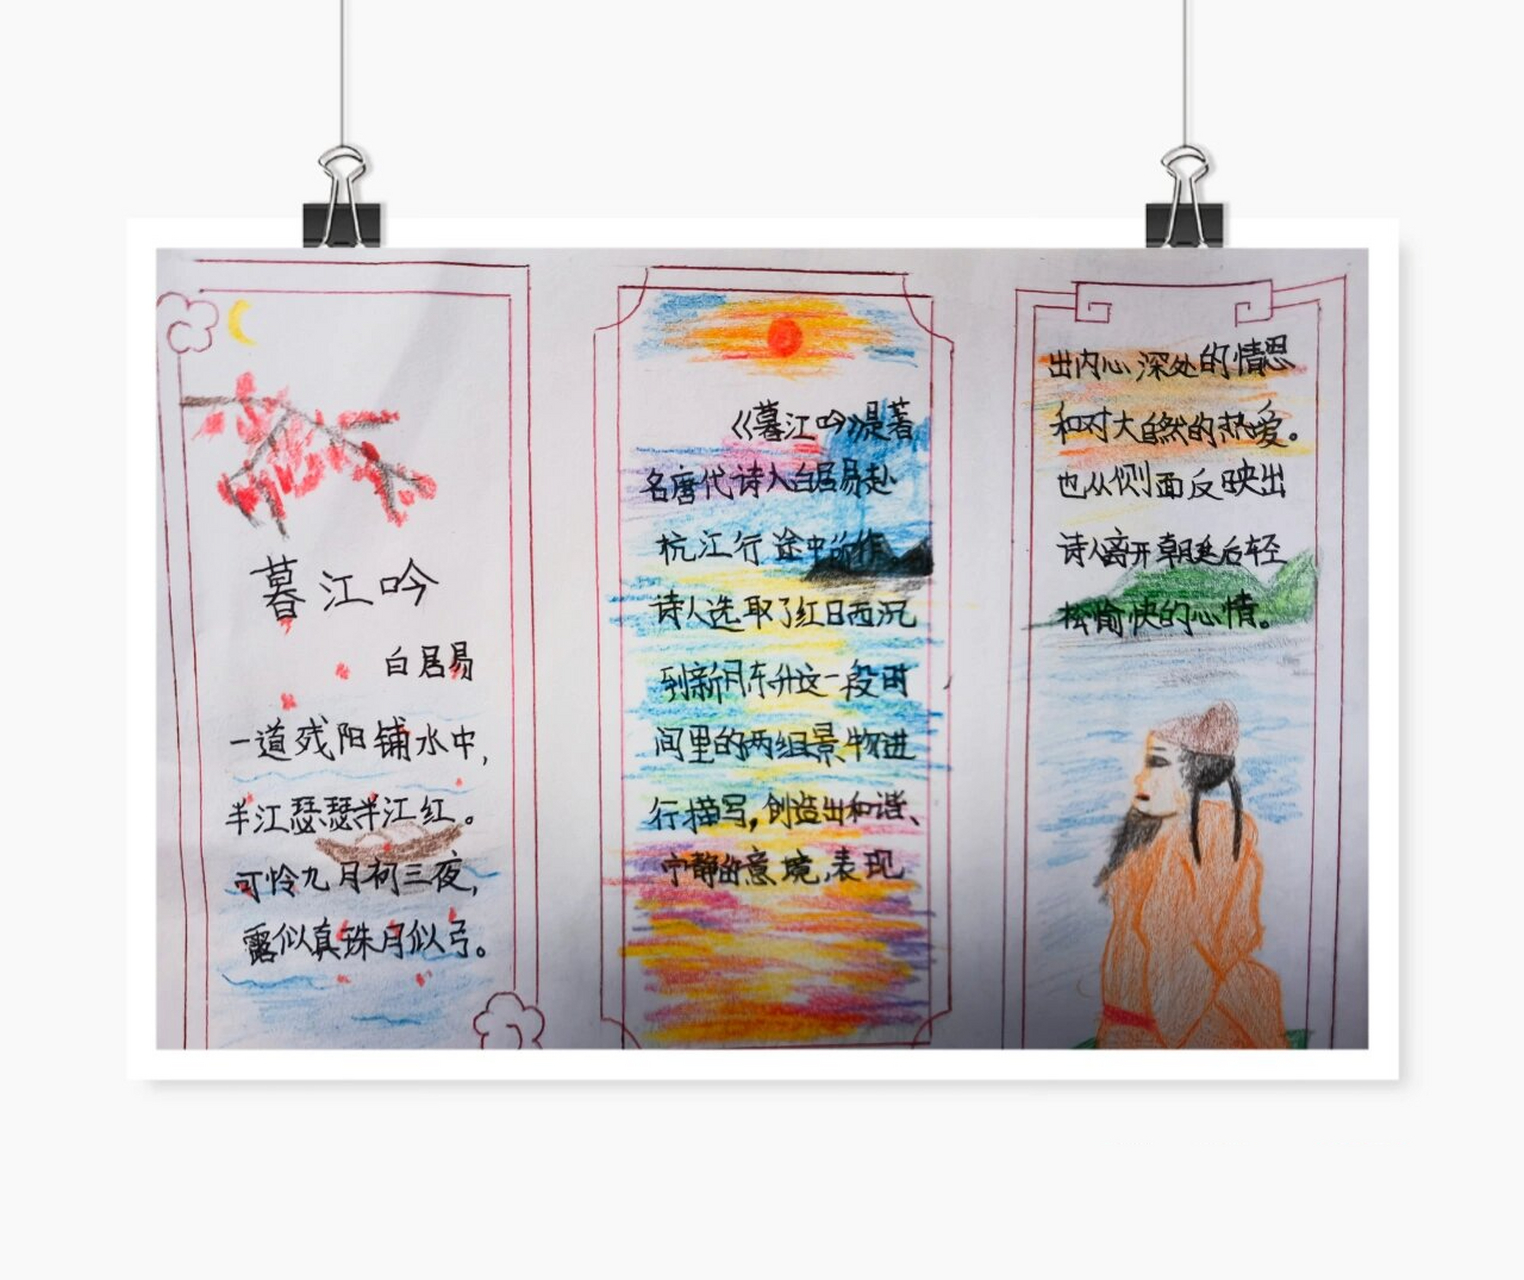 暮江吟
白居易
一道残阳铺水中，
半江瑟瑟半江红。
可怜九月初三夜，
露似真珠月似弓。
《暮江吟》是著
名唐代诗人白居易赴
杭江行途中所作
诗人选取了红日西沉
到新月东升这一段时
间里的两组景物进
行描写，创造出和谐、
宁静的意境，表现
出内心深处的情思
和对大自然的热爱。
也从侧面反映出
诗人离开朝廷后轻
松愉快的心情。